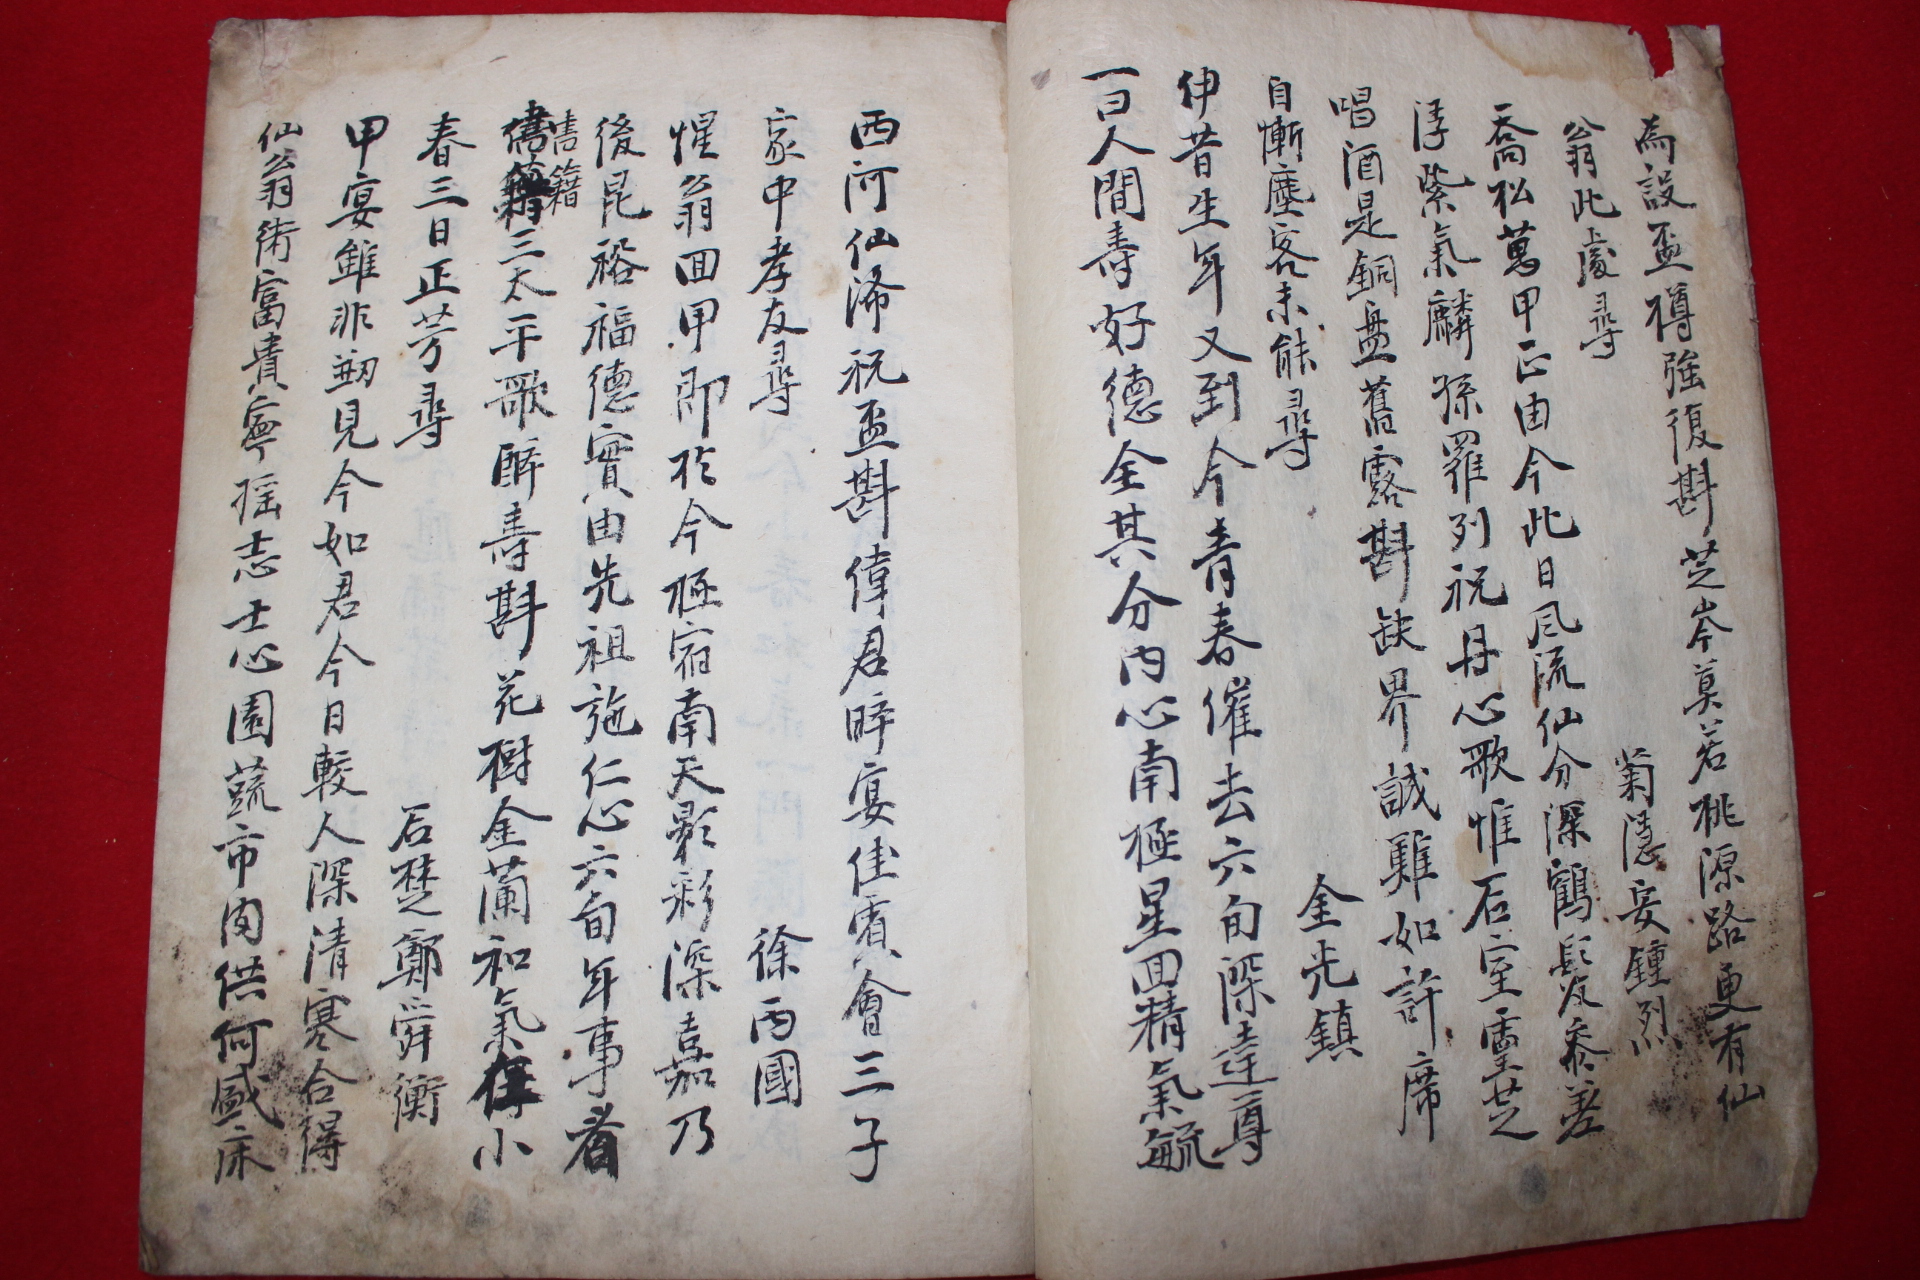 為設盃樽強復斟芝岑莫若桃源路更有仙
翁此處尋
菊隱安鍾烈
喬松萬甲正由今此日風流仙分深鶴髮參差
浮紫氣麟孫羅列祝丹心歌惟石室靈芝
唱酒是銅盘舊露斟缺界誠難如許席
自慚塵客未能尋
金光鎮
伊昔生年又到今青春催去六旬深達尊
一曰人間壽好德全其分內心南極星回精氣毓
西河仙涛祝盃斟偉君晬宴佳賓會三子
家中孝友尋
徐丙國
惺翁回甲即於今極宿南天影彩深嘉乃
後昆裕福德實由先祖施仁心六旬年事看
書籍
三太平歌酵壽斟花樹金蘭和氣小
春三日正芳尋
石楚鄭舜衡
甲宴雖非刱見今如君今日較人深清寒合得
仙翁術富貴寧搖志士心園蔬市肉供何盛床